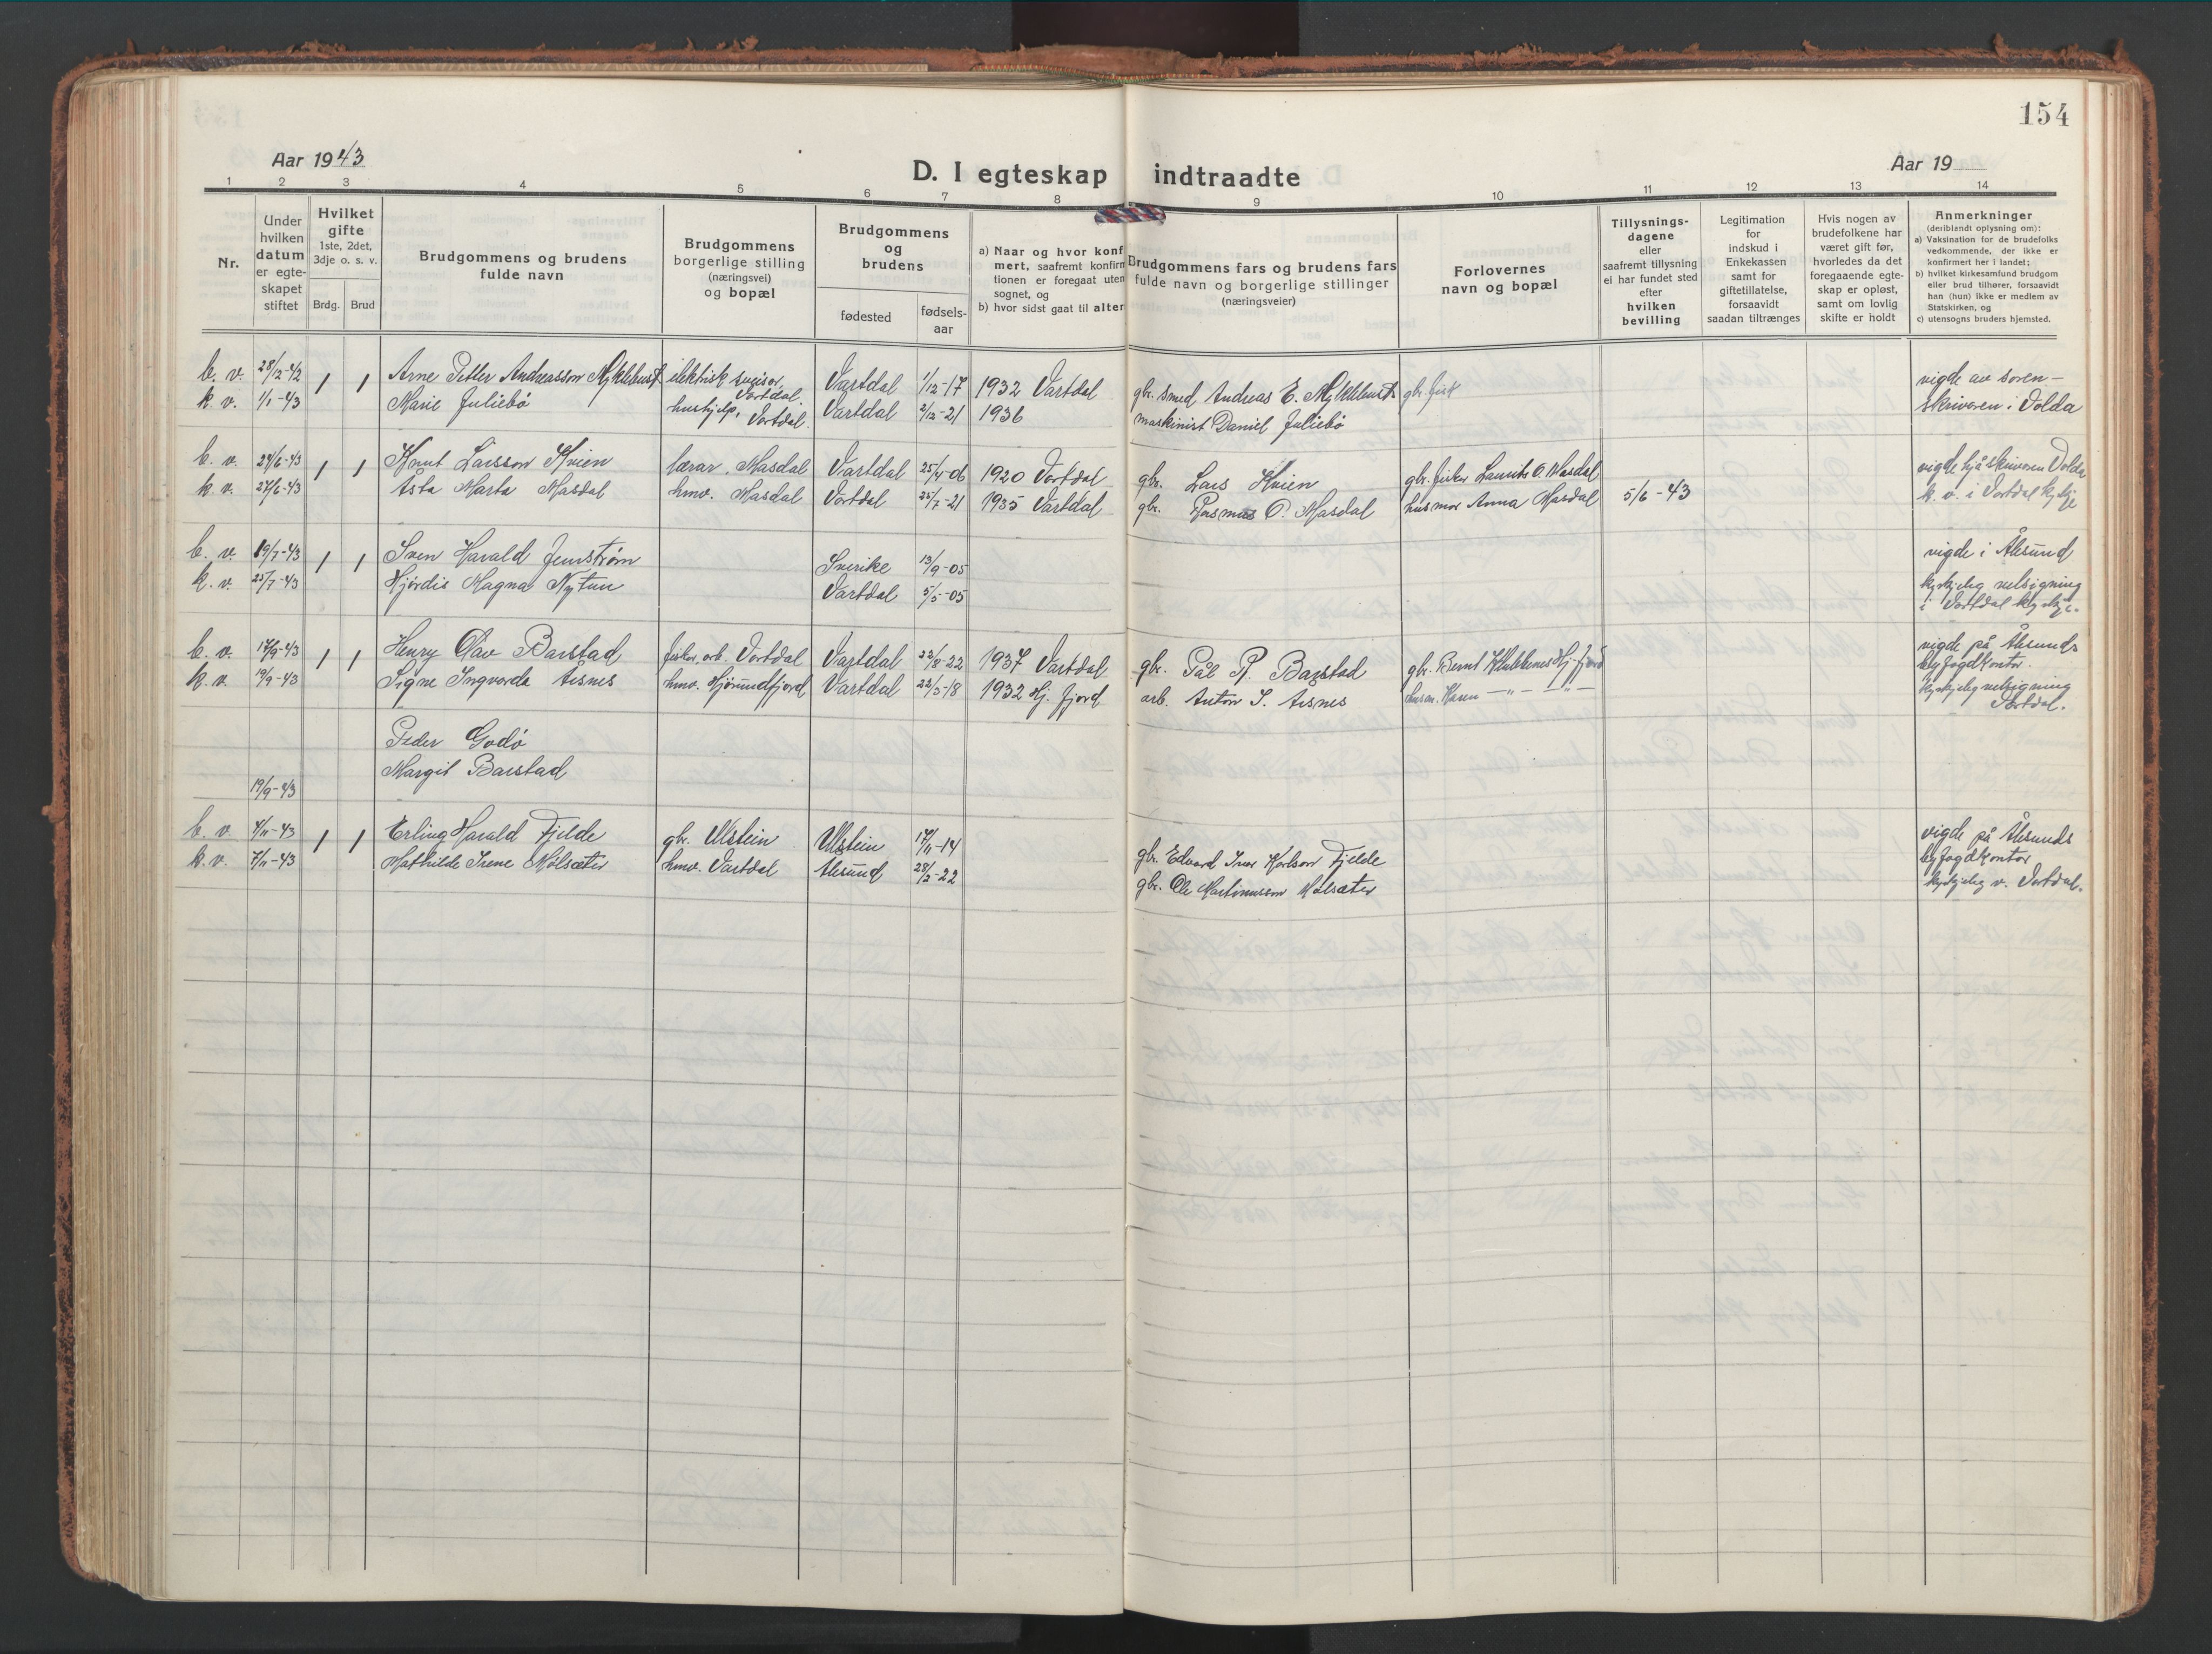 154
Aar 1943
D. I egteskap indtraadte
Aar 19
1 2 3 4 5 6 7 8 9 10 11 12 13 14
Nr.
Under hvilken datum er egteskapet stiftet
Hvilket gifte
1ste, 2det, 3dje o. s. v.
Brdg. Brud
Brudgommens og brudens fulde navn
Brudgommens borgerlige stilling (næringsvei) og bopæl
Brudgommens og brudens
fødested
fødsels-aar
a) Naar og hvor konf
mert, saafremt konfirm
tionen er foregaat uten
sognet, og
b) hvor sidst gaat til alter
Brudgommens fars og brudens fars
fulde navn og borgerlige stillinger
(næringsveier)
Forlovernes
navn og bopæl
Tillysnings-
dagene
eller
saafremt tillysning
ei har fundet sted
efter
hvilken
bevilling
Legitimation
for
indskud i
Enkekassen
samt for
giftetillatelse,
forsaavidt
saadan tiltrænges
Hvis nogen av
brudefolkene har
været gift før,
hvorledes da det
foregaaende egte-
skap er opløst,
samt om lovlig
skifte er holdt
Anmerkninger
(deriblandt oplysning om):
a) Vaksination for de brudefolks
vedkommende, der ikke er
konfirmert her i landet;
b) hvilket kirkesamfund brudgom
eller brud tilhører, forsaavidt
han (hun) ikke er medlem av
Statskirken, og
c) utensogns bruders hjemsted.
b. v. 28/12-42 1 1 Arne Petter Andreasson Myklebust elektrisk Vartdal. Vartdal 1/12-17 1932 Vartdal gbr. smed Andreas E. Myklebust gbr. fisk vigde av soren-
k. v. 1/1-43 Marie Juliebø hushjelp, Vartdal. Vartdal 2/12-21 1936 maskinist Daniel Juliebø skrivaren i Volda
b. v. 24/6-43 1 1 Knut Larsson Kvien lærar, Masdal Vartdal 25/4-06 1920 Vartdal gbr. Lars Kvien gbr. fisker Laurits O. Masdal vigde hjå skrivaren Volda
k. v. 27/6-43 Åsta Marta Masdal hmv. Masdal Vartdal 25/7-21 1935 Vartdal gbr. Rasmus O. Masdal husmor Anna Masdal 5/6-43 k. v. i Vartdal kyrkje
b. v. 19/7-43 1 1 Sven Harald Jernstrøm Sverike 13/9-05 vigde i Ålesund
k. v. 25/7-43 Hjørdis Magna Nytun Vartdal 5/5-05 kyrkjeleg velsigning
i Vartdal kyrkje.
b. v. 17/9-43 1 1 Henry Olav Barstad fisker, arb. Vartdal Vartdal 22/8-22 1937 Vartdal gbr. Pål R. Barstad gbr. Bernt Klubbenes Hj. fjord vigde på Ålesunds
k. v. 19/9-43 Signe Ingvarda Aasnes hmv. Hjørundfjord Vartdal 22/3-18 1932 Hj. fjord arb. Anton I. Aasnes husm. Karen -"- -"- byfogdkontor.
kyrkjeleg velsigning
Vartdal.
Peder Godø
Margit Barstad
19/9-43
b. v. 4/11-43 1 1 Erling Harald Fjelde gbr. Ulstein Ulstein 17/11-14 gbr. Edvard Ivar Karlson Fjelde vigde på Ålesunds
k. v. 7/11-43 Mathilde Irene Mølsæter hmv. Vartdal Ålesund 28/2-22 gbr. Ole Martinusson Mølsæter byfogdkontor
kyrkjeleg v. Vartdal.